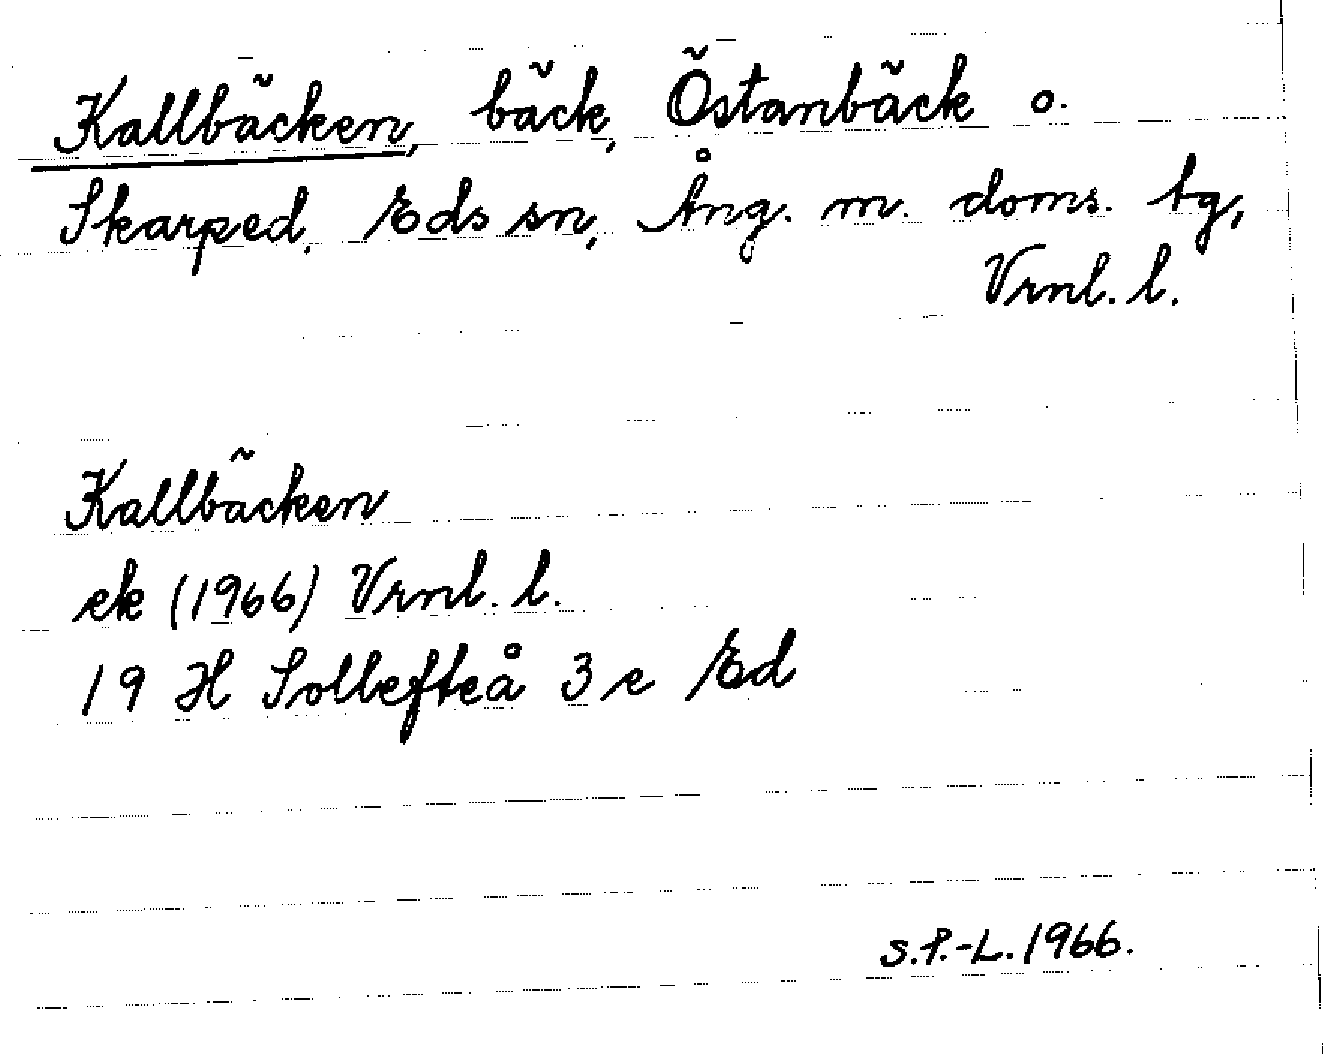 Kallbäcken, bäck, Östanbäck o.
Skarped, Eds sn, Ång. m. doms. tg,
Vrnl. l.
Kallbäcken
ek (1966) Vrnl. l.
19 H Sollefteå 3 e Ed
S.P.-L. 1966.